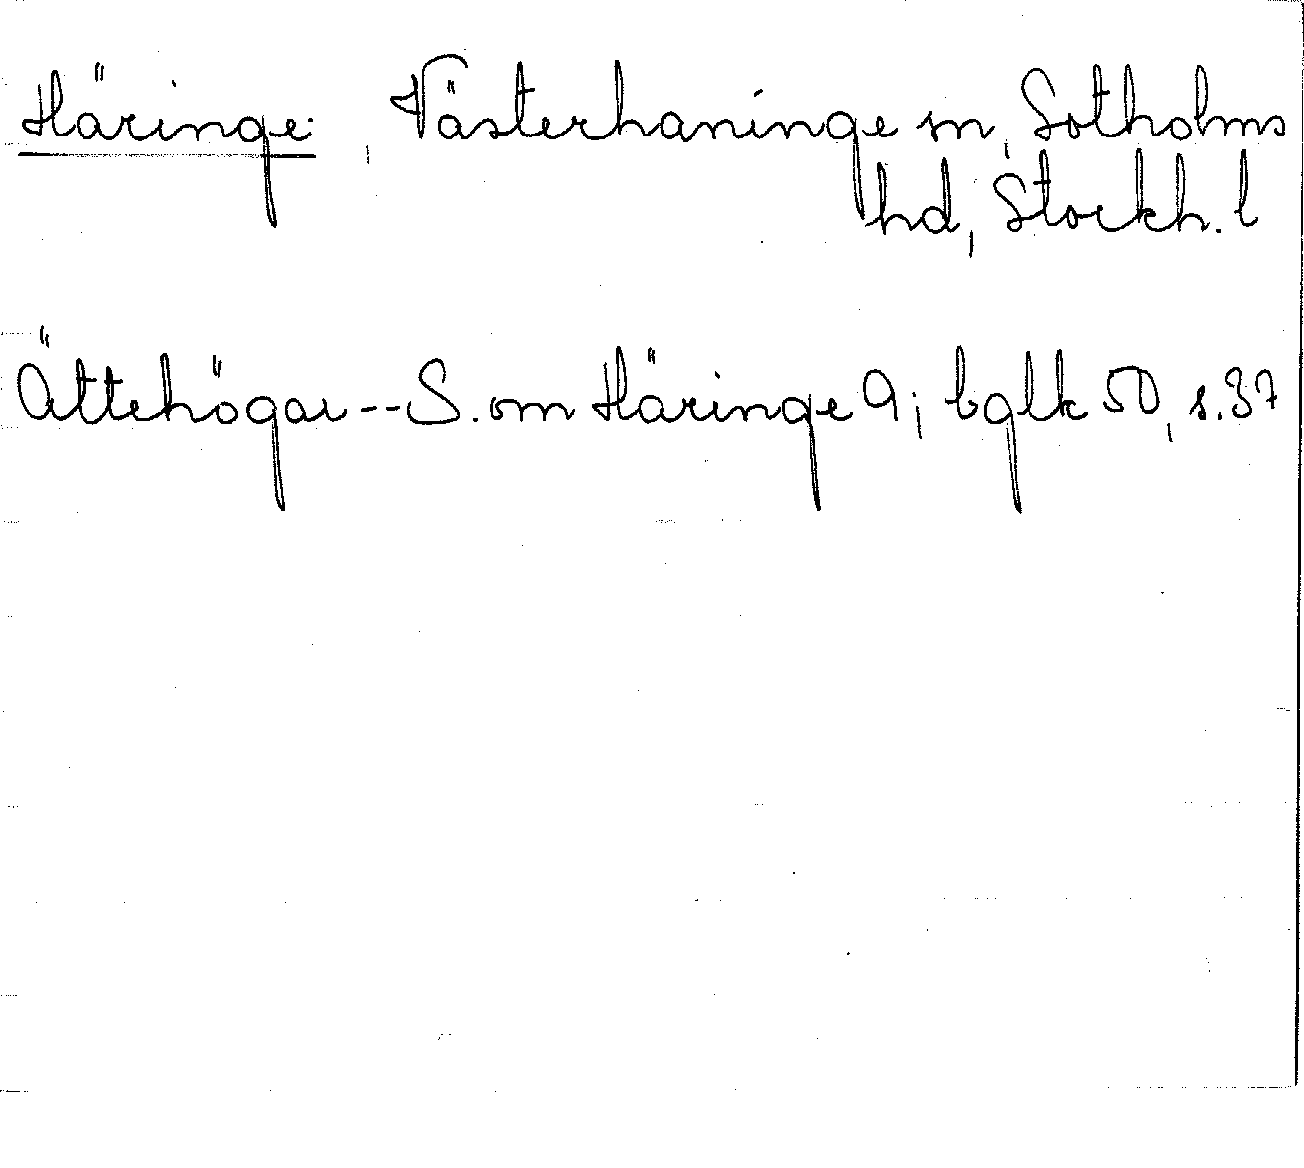 Häringe, Västerhaninge sn, Sotholms
hd, Stockh. l
Ättehögar -- S. om Häringe 9; bglk 50, s. 37